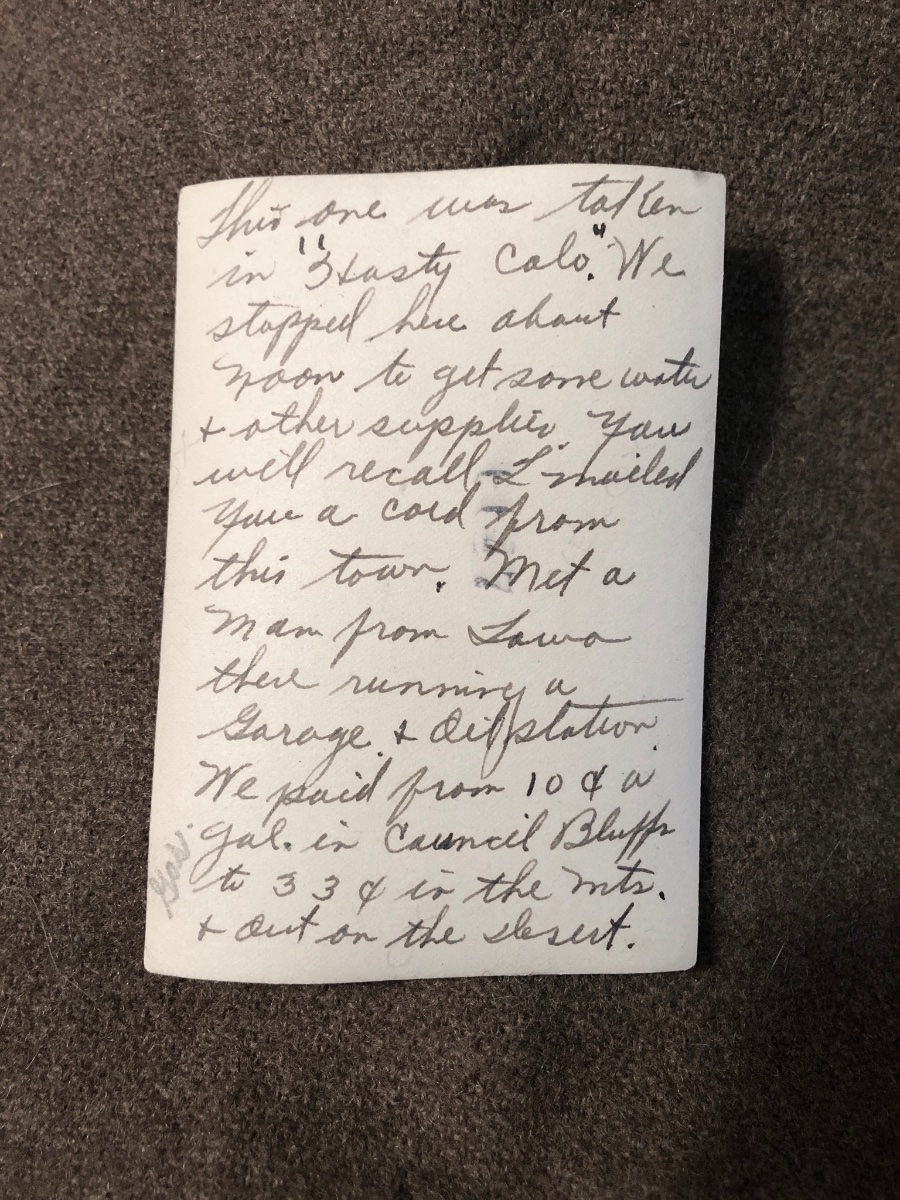 This one was taken
in "Hasty Colo". We
stopped here about
Noon to get some water
+ other supplies You
will recall I mailed
You a card from
this town. Met a
Man from Iowa
there running a
Garage & Oil station
We paid from 10 ¢ a
gal. in Council Bluffs
to 33 ¢ in the mts.
+ Out on the Desert.
Gas.